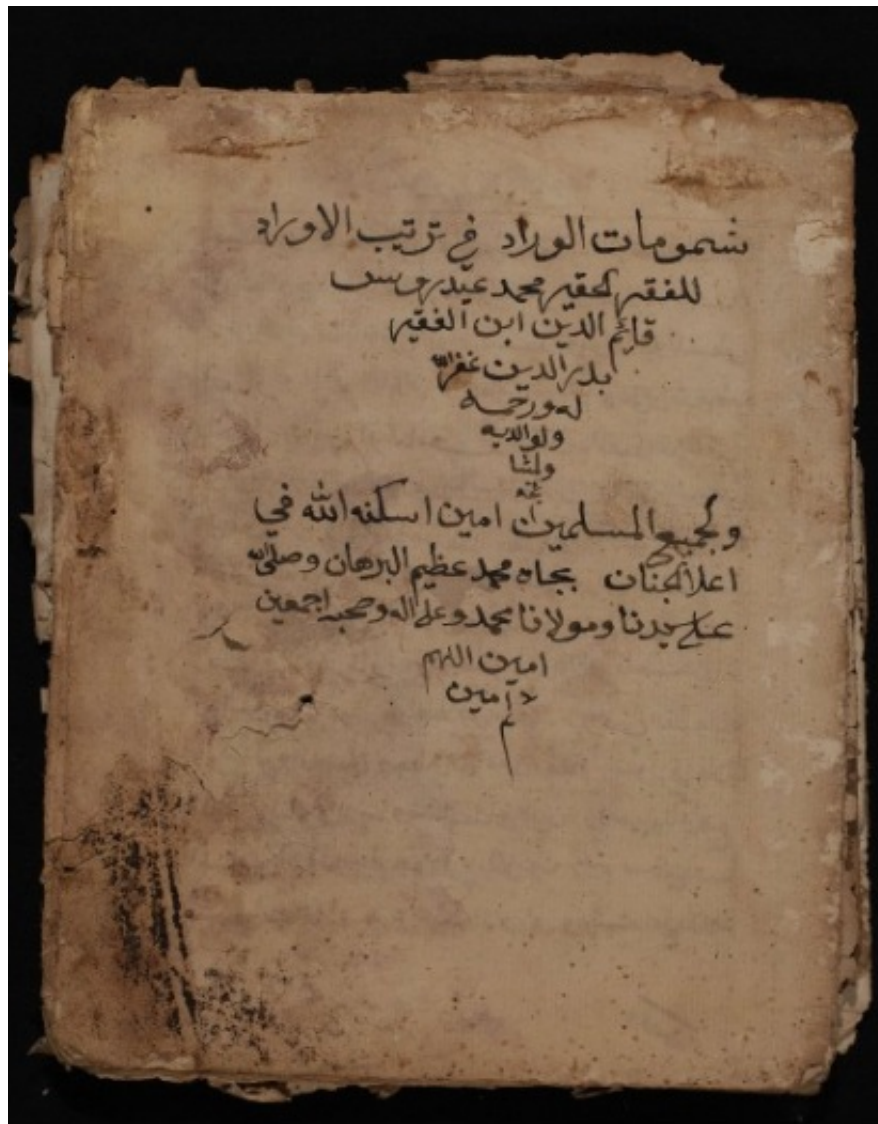 شمومات الوراد في ترتيب الاوراد
للفقير الحقير محمد عيدروس
قائم الدين ابن الفقير
بدر الدين غفر الله
له ورحمه
ولوالديه
ولنا
ولجميع المسلمين امين اسكنه الله في
اعلا الجنان بجاه محمد عظيم البرهان وصلى الله
على سيدنا ومولانا محمد وعلى اله وصحبه اجمعين
امين اللهم
امين
م